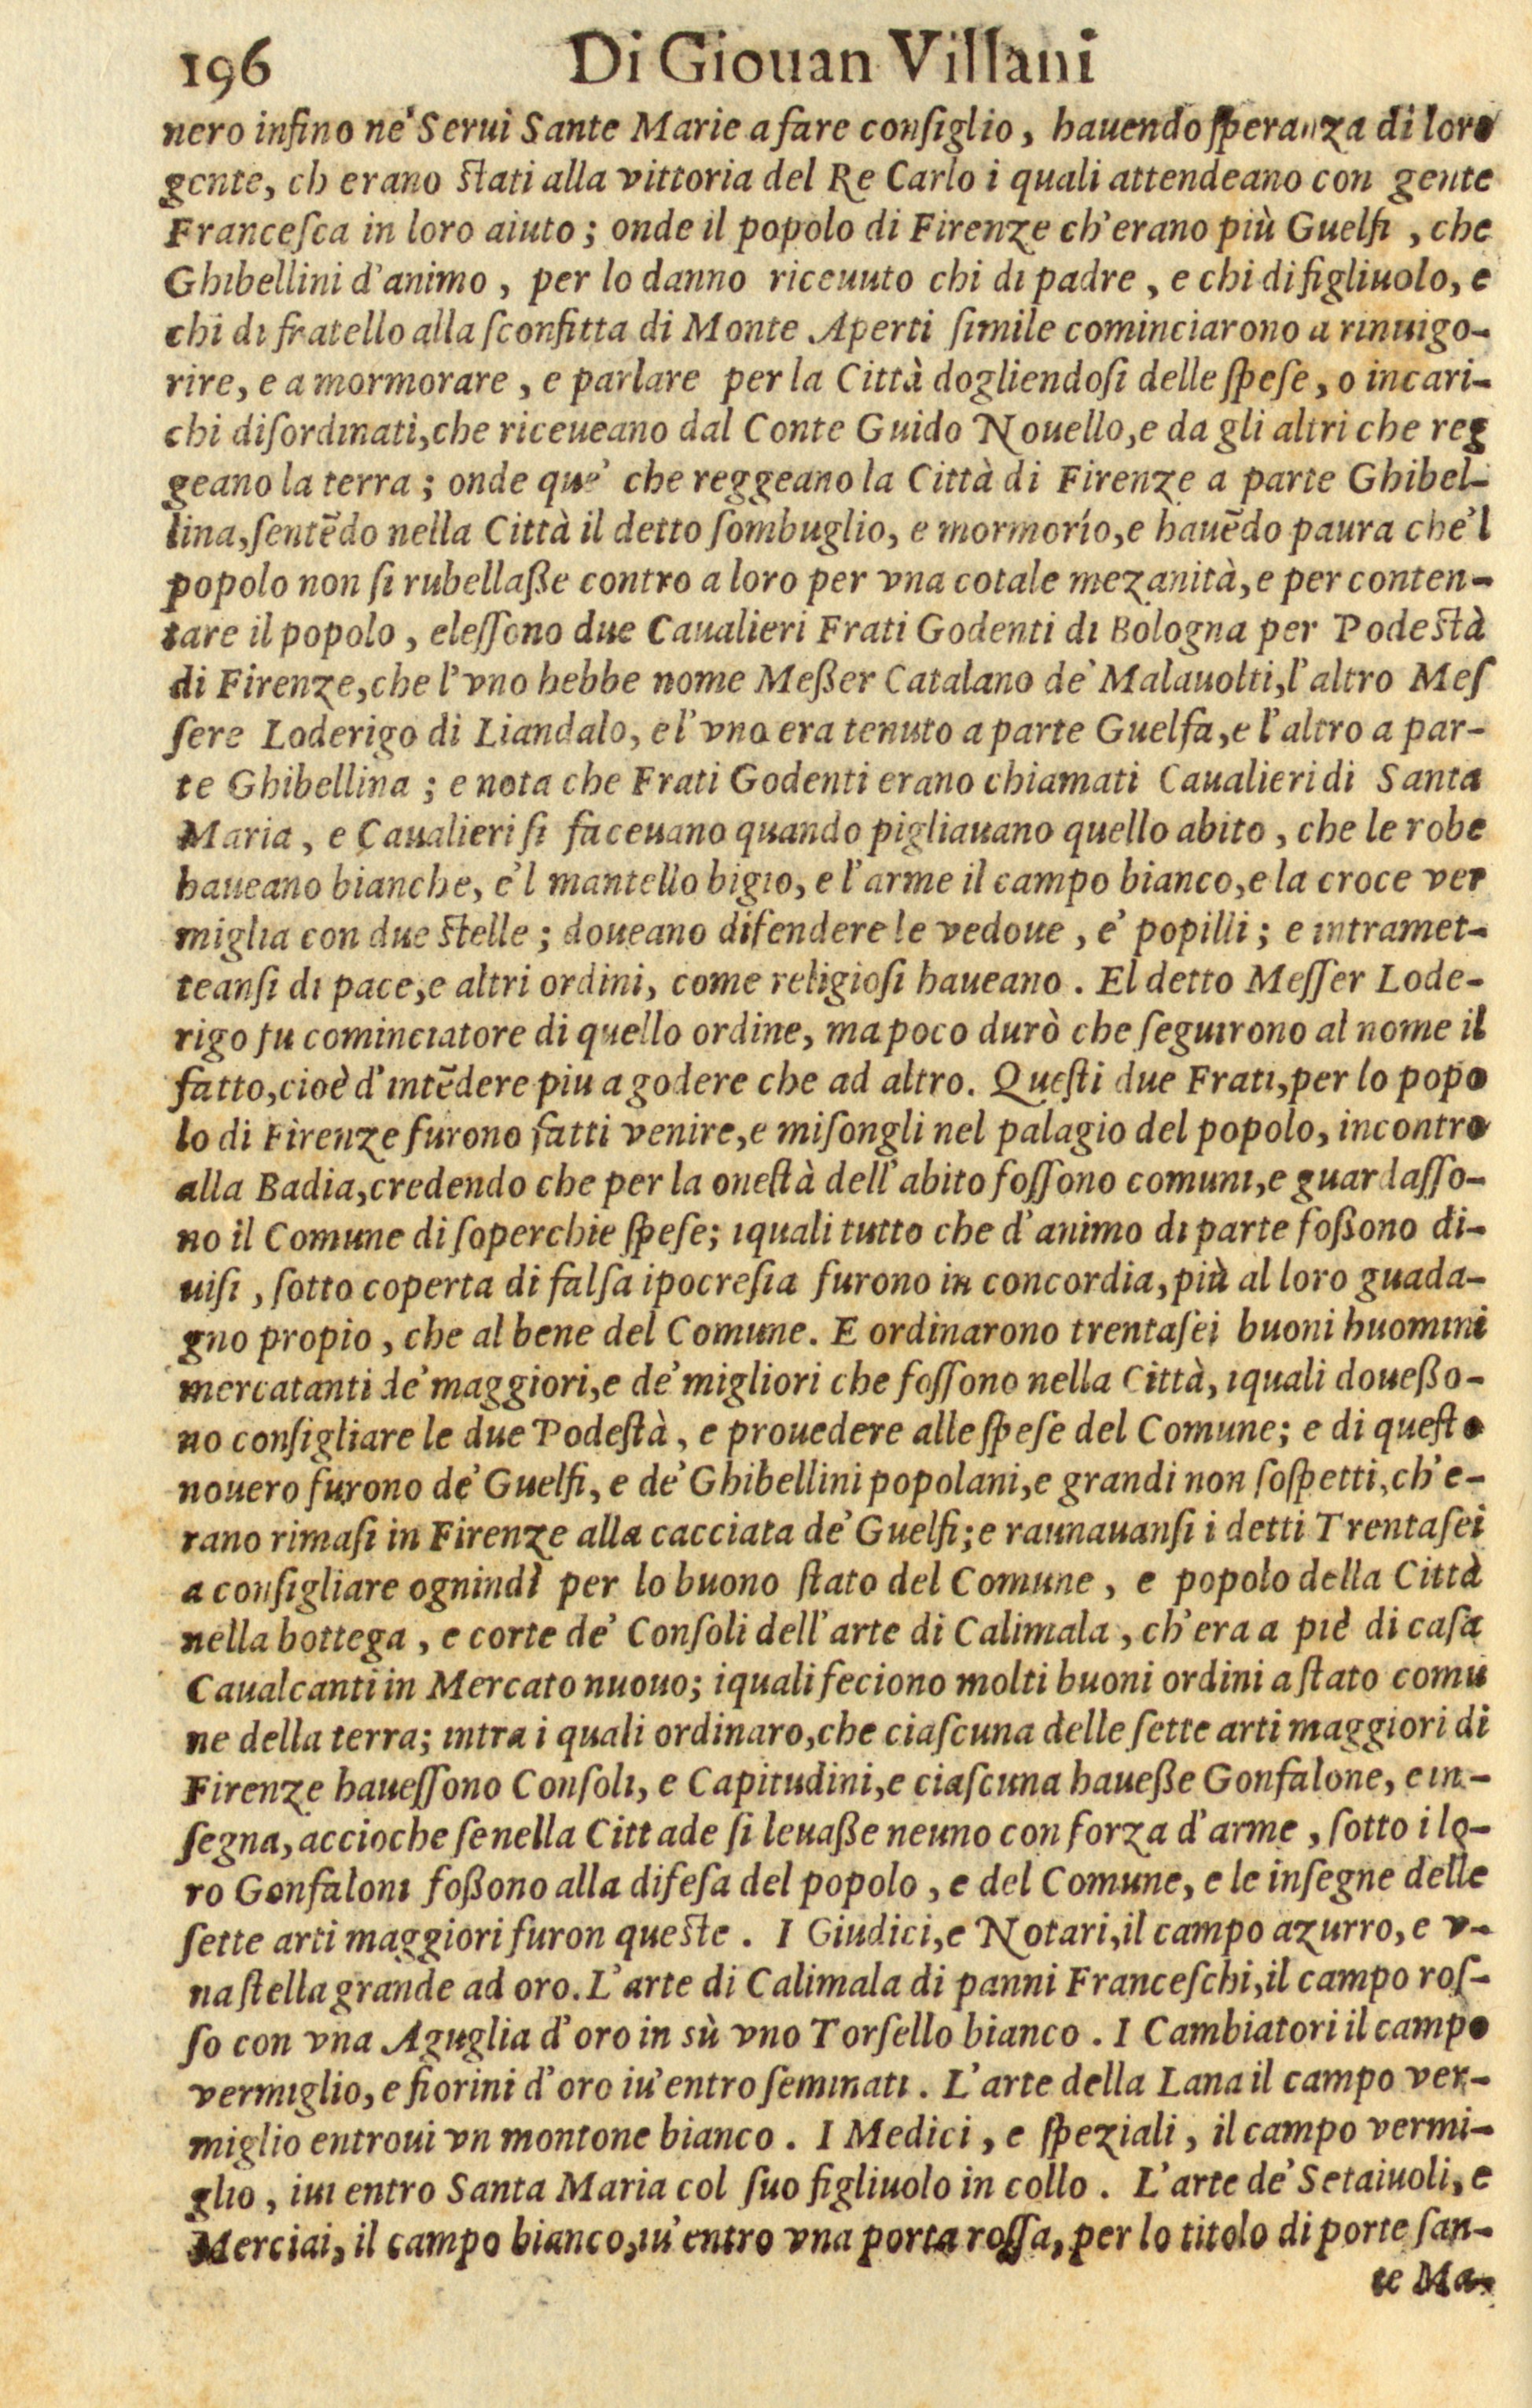 196 Di Giouan Villani
nero infino ne' Serui Sante Marie a fare conſiglio, hauendo ſperanza di loro
gente, ch erano ſtati alla vittoria del Re Carlo i quali attendeano con gente
Franceſca in loro aiuto; onde il popolo di Firenze ch'erano più Guelfi, che
Ghibellini d'animo, per lo danno riceuuto chi di padre, e chi di figliuolo, e
chi di fratello alla ſconfitta di Monte Aperti ſimile cominciarono a rinuigo-
rire, e a mormorare, e parlare per la Città dogliendoſi delle ſpeſe, o incari-
chi diſordinati, che riceueano dal Conte Guido Nouello, e da gli altri che reg
geano la terra; onde que' che reggeano la Città di Firenze a parte Ghibel-
lina, ſentẽdo nella Città il detto ſombuglio, e mormorío, e hauẽdo paura che'l
popolo non ſi rubellaße contro a loro per vna cotale mezanità, e per conten-
tare il popolo, eleſſono due Caualieri Frati Godenti di Bologna per Podeſtà
di Firenze, che l'vno hebbe nome Meßer Catalano de' Malauolti, l'altro Meſ
ſere Loderigo di Liandalo, e l'vno era tenuto a parte Guelfa, e l'altro a par-
te Ghibellina; e nota che Frati Godenti erano chiamati Caualieri di Santa
Maria, e Caualieri ſi faceuano quando pigliauano quello abito, che le robe
haueano bianche, e'l mantello bigio, e l'arme il campo bianco, e la croce ver
miglia con due ſtelle; doueano difendere le vedoue, e' popilli; e intramet-
teanſi di pace, e altri ordini, come religioſi haueano. El detto Meſſer Lode-
rigo fu cominciatore di quello ordine, ma poco durò che ſeguirono al nome il
fatto, cioè d'intẽdere piu a godere che ad altro. Queſti due Frati, per lo popo
lo di Firenze furono fatti venire, e miſongli nel palagio del popolo, incontro
alla Badia, credendo che per la oneſtà dell'abito foſſono comuni, e guardaſſo-
no il Comune di ſoperchie ſpeſe; iquali tutto che d'animo di parte foßono di-
uiſi, ſotto coperta di falſa ipocreſia furono in concordia, più al loro guada-
gno propio, che al bene del Comune. E ordinarono trentaſei buoni huomini
mercatanti de' maggiori, e de' migliori che foſſono nella Città, iquali doueßo-
no conſigliare le due Podeſtà, e prouedere alle ſpeſe del Comune; e di queſto
nouero furono de' Guelfi, e de' Ghibellini popolani, e grandi non ſoſpetti, ch'e-
rano rimaſi in Firenze alla cacciata de' Guelfi; e raunauanſi i detti Trentaſei
a conſigliare ognindì per lo buono ſtato del Comune, e popolo della Città
nella bottega, e corte de' Conſoli dell'arte di Calimala, ch'era a piè di caſa
Caualcanti in Mercato nuouo; iquali feciono molti buoni ordini a ſtato comu
ne della terra; intra i quali ordinaro, che ciaſcuna delle ſette arti maggiori di
Firenze haueſſono Conſoli, e Capitudini, e ciaſcuna haueße Gonfalone, e in-
ſegna, accioche ſe nella Cittade ſi leuaße neuno con forza d'arme, ſotto i lo-
ro Gonfaloni foßono alla difeſa del popolo, e del Comune, e le inſegne delle
ſette arti maggiori furon queſte. I Giudici, e Notari, il campo azurro, e v-
na ſtella grande ad oro. L'arte di Calimala di panni Franceſchi, il campo roſ-
ſo con vna Aguglia d'oro in sù vno Torſello bianco. I Cambiatori il campo
vermiglio, e fiorini d'oro iu'entro ſeminati. L'arte della Lana il campo ver-
miglio entroui vn montone bianco. I Medici, e ſpeziali, il campo vermi-
glio, iui entro Santa Maria col ſuo figliuolo in collo. L'arte de' Setaiuoli, e
Merciai, il campo bianco, iu'entro vna porta roſſa, per lo titolo di porte ſan-
te Ma-